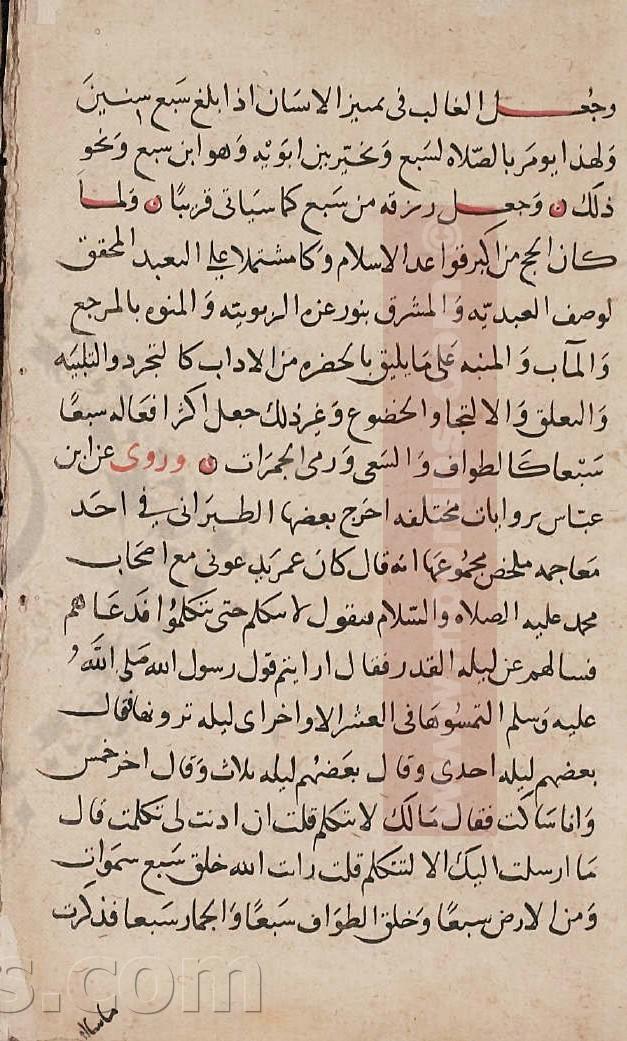 وجعل الغالب في تمييز الانسان اذا بلغ سبع سنين
ولهذا يومر بالصلاه لسبع ويخير بين ابويه وهو ابن سبع ونحو
ذلك ۞ وجعل رزقه من سبع كما سياتي قريبًا ۞ ولما
كان الحج من اكبر قواعد الاسلام وكا مشتملا علي التعبد المحقق
لوصف العبديه والمشرق بنور عزه الربوبيته والمنوه بالمرجع
والمآب والمنبه على ما يليق بالحضره من الاداب كالتجرد والتلبيه
والتعلق والالتجا والخضوع وغير ذلك جعل اكثر افعاله سبعًا
سبعا كالطواف والسعى ورمى الجمرات ۞ وروى عن ابن
عباس بروايات مختلفه اخرج بعضها الطبراني في احد
معاجمه ملخص مجموعها انه قال كان عمر يدعوني مع اصحاب
محمد عليه الصلاه والسلام فيقول لا تتكلم حتى يتكلموا فدعاهم
فسالهم عن ليله القدر فقال ارايتم قول رسول الله صلى الله
عليه وسلم التمسوها في العشر الاواخر اى ليله ترونها فقال
بعضهم ليله احدى وقال بعضهم ليله ثلاث وقال اخر خمس
وانا ساكت فقال مالك لا تتكلم قلت ان اذنت لي تكلمت قال
ما ارسلت اليك الا لتتكلم قلت رات الله خلق سبع سموات
ومن الارض سبعًا وخلق الطواف سبعًا والجمار سبعا فذكرت
s.com